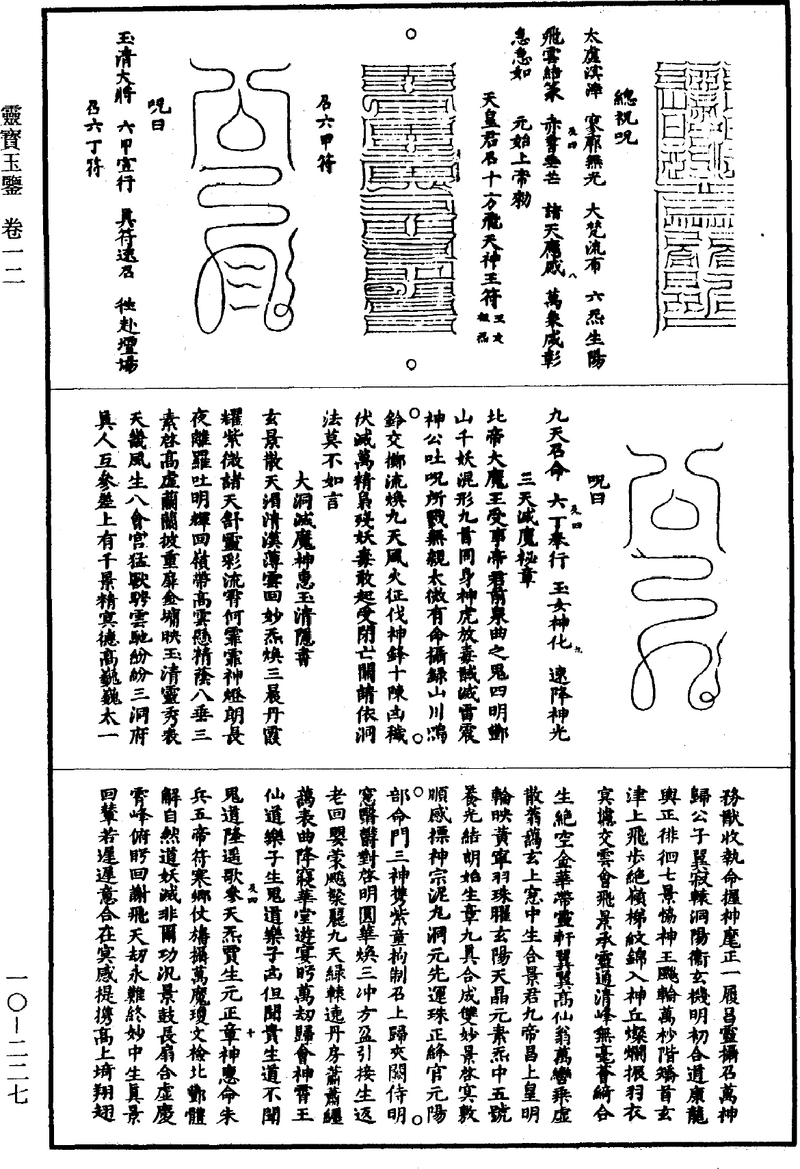 靈寶玉鑒 卷一二
一〇—二二七
總祝呪
太虛溟涬 寥廓無光 大梵流布 六炁生陽
飛雲結篆 赤書垂芒 諸天魔威 萬炁成彰
急急如 元始上帝勑
天皇君召十方飛天神王符
召六甲符
呪曰
玉清大將 六甲宣行 真符速召 徃赴壇場
召六丁符
呪曰
九天召命 六丁奉行 玉女神化 速降神光
三天滅魔秘章
北帝大魔王受事帝君前泉曲之鬼四明酆
山千妖混形九首同身神虎放毒馘滅雷震
神公吐呪所戮無親太微有命攝錄山川鳴
鈴交擲流煥九天風火征伐神鋒十陳凶穢
伏滅萬精梟殘妖毒敢起受閉亡關請依洞
法莫不如言
大洞滅魔神惠玉清隱書
玄景散天湄清漢薄雲回妙炁煥三晨丹霞
耀紫微諸天舒靈彩流霄何霏霏神燈朗長
夜離羅吐明輝回嶺帶高雲懸精蔭八垂三
素啓高虛蘭蘭披重扉金墉映玉清靈秀表
天畿風生八會宮猛獸騁雲馳紛紛三洞府
真人互參差上有千景精冥德高巍巍太一
務猷收執命握神麾正一履昌靈攝召萬神
歸公子翼寂轅洞陽衛玄機明初合道康龍
輿正徘徊七景協神王颷輪萬杪階矯首玄
津上飛步絶嶺梯紋錦入神丘燦爛振羽衣
冥爐交雲會飛景承靈通清峰無毫薈綺合
生絶空金華帶靈軒翼翼高仙翁萬轡乘虛
散翥藹玄上窓中生合景君九帝昌上皇明
輪映黃寧羽珠曜玄陽天晶元素炁中五號
養光結胡始生章九真合成雙妙景啓冥敷
順感摽神宗泥丸洞元先運珠正絳宮元陽
部命門三神携紫童拘制召上歸夾闕侍明
窓翳鬱對啓明圓華煥三冲方盈引接生返
老回嬰蒙颷粲麗九天緑轅速丹房蕭蕭纒
藹表曲降寢華堂遊宴眄萬劫歸會神霄王
仙道樂子生鬼道樂子凶但聞貴生道不聞
鬼道隆遥歌參天炁賈生元正章神惠命朱
兵五帝符寒鄉仗檮攝萬魔瓊文檢北酆體
解自然道妖滅非爾功汎景鼓長扇合虛慶
霄峰俯眄回謝飛天劫永難終妙中生真景
回輦若遲遲意合在冥感提携高上埼翔翅